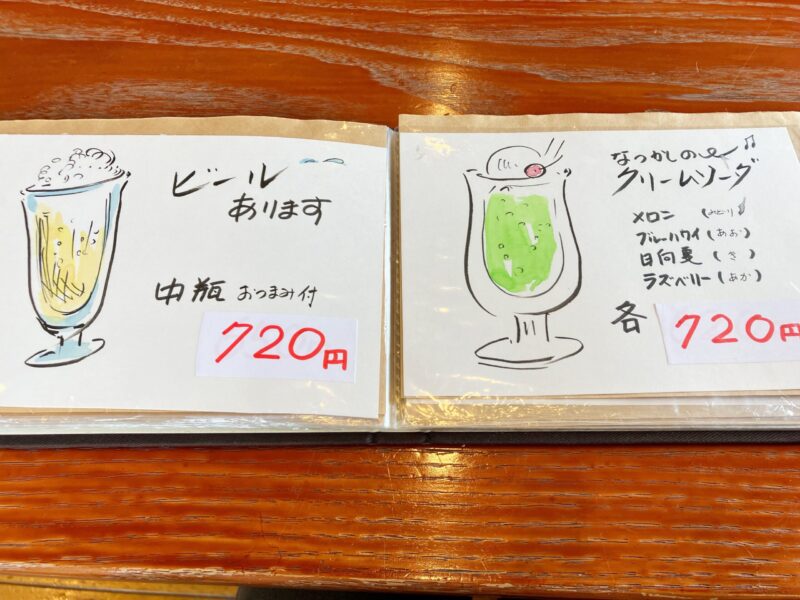 ビール
あります
中瓶 おつまみ付
720円
なつかしの
クリームソーダ
メロン (みどり)
ブルーハワイ (あお)
日向夏 (き)
ラズベリー (あか)
各 720円